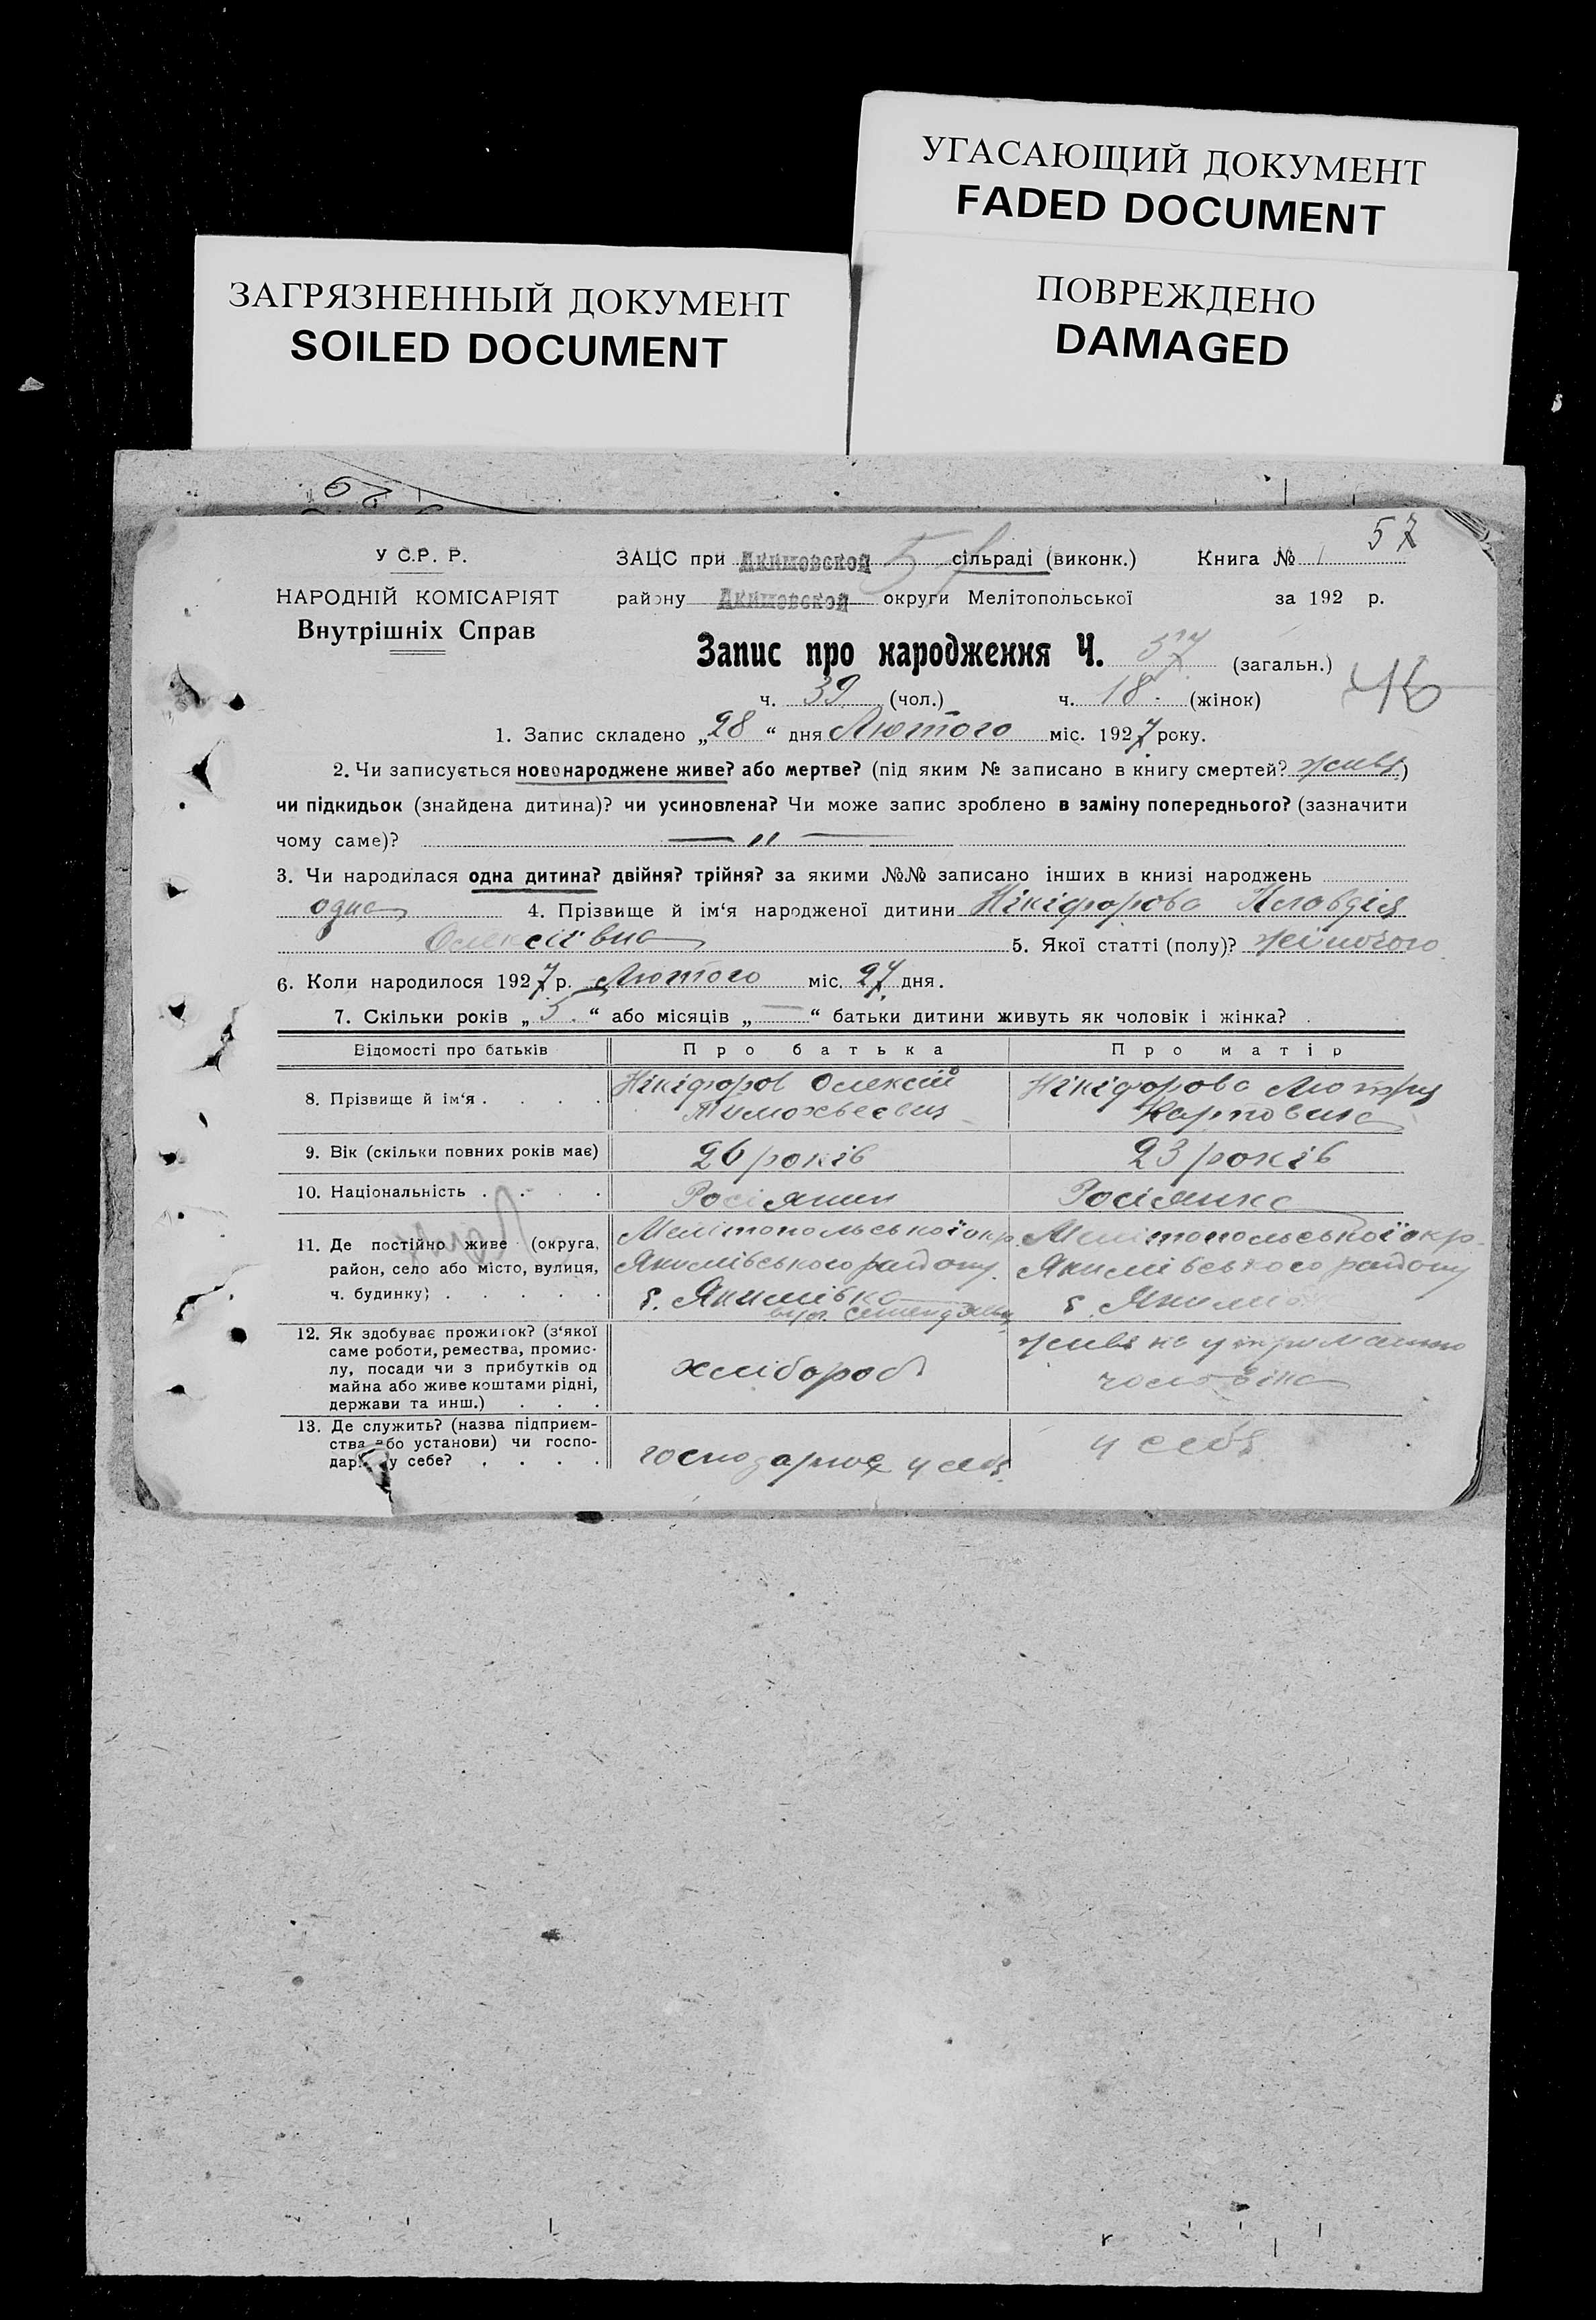 УГАСАЮЩИЙ ДОКУМЕНТ
FADED DOCUMENT
ЗАГРЯЗНЕННЫЙ ДОКУМЕНТ
SOILED DOCUMENT
ПОВРЕЖДЕНО
DAMAGED
57
У С.Р. Р.
НАРОДНІЙ КОМІСАРІЯТ
Внутрішніх Справ
ЗАЦС при Акимовской сільраді (виконк.) Книга № 1
району Акимовской округи Мелітопольської за 192 р.
Запис про народження Ч. 57 (загальн.)
46
ч. 39 (чол.) ч. 18 (жінок)
1. Запис складено „28“ дня Лютого міс. 1927 року.
2. Чи записується новонароджене живе? або мертве? (під яким № записано в книгу смертей? живе)
чи підкидьок (знайдена дитина)? чи усиновлена? Чи може запис зроблено в заміну попереднього? (зазначити
чому саме)? — „ —
3. Чи народилася одна дитина? двійня? трійня? за якими №№ записано інших в книзі народжень
одна 4. Прізвище й ім‘я народженої дитини Нікіфорова Кловдія
Олексіївна 5. Якої статті (полу)? жіночого
6. Коли народилося 1927 р. Лютого міс. 27 дня.
7. Скільки років „5“ або місяців „—“ батьки дитини живуть як чоловік і жінка?
Відомості про батьків Про батька Про матір
8. Прізвище й ім‘я . . . . Нікіфоров Олексій Нікіфорова
Карповна
9. Вік (скільки повних років має) 26 років 23 років
10. Національність . . . . Росіянин Росіянка
11. Де постійно живе (округа, Мелітопольської окр. Мелітопольської окр.
район, село або місто, вулиця, Якимівського району Якимівського району
ч. будинку) . . . . . с. Якимівка с. Якимів
вул.
12. Як здобуває прожиток? (з‘якої
саме роботи, ремества, промис-
лу, посади чи з прибутків од
майна або живе коштами рідні,
держави та инш.) . . .
хлібороб живе на утриманню
чоловіка
13. Де служить? (назва підприєм-
ства або установи) чи госпо-
дар. у себе? . . . .
господарює у себе у себе